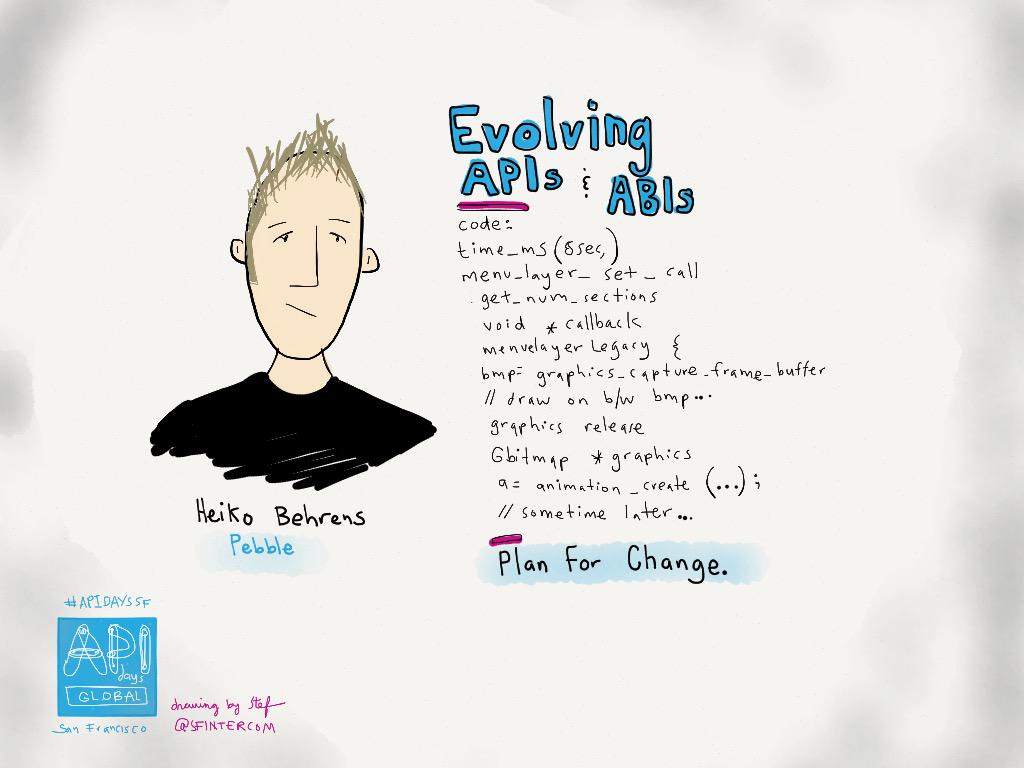 Evolving
APIs & ABIs
code:
time_ms (&sec,)
menu_layer_ set _ call
get_num_sections
void * callback
menvelayer Legacy {
bmp= graphics_capture_frame_buffer
// draw on b/w bmp...
graphics release
Gbitmap * graphics
a= animation_create (...) ;
// sometime later...
Plan For Change.
Heiko Behrens
Pebble
#APIDAYSSF
API
days
GLOBAL
San Francisco
drawing by Stef
@SFINTERCOM